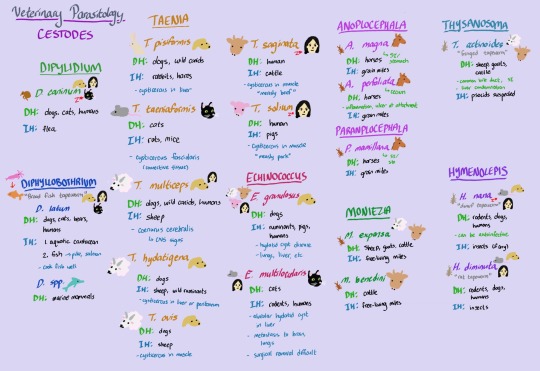 Veterinary Parasitology
CESTODES
DIPYLIDIUM
D. caninum
DH: dogs, cats, humans
IH: flea
DIPHYLLOBOTHRIUM
"Broad fish tapeworm"
D. latum
DH: dogs, cats, bears,
humans
IH: 1. aquatic crustacean
2. fish → pike, salmon
- cook fish well
D. spp
DH: marine mammals
TAENIA
T. pisiformis
DH: dogs, wild canids
IH: rabbits, hares
- cysticercus in liver
T. taeniaformis
DH: cats
IH: rats, mice
- cysticercus fasciolaris
(connective tissue)
T. multiceps
DH: dogs, wild canids, humans
IH: sheep
- coenurus cerebralis
↳ CNS signs
T. hydatigena
DH: dogs
IH: sheep, wild ruminants
- cysticercus in liver or peritoneum
T. ovis
DH: dogs
IH: sheep
- cysticercus in muscle
T. saginata
DH: human
IH: cattle
- cysticercus in muscle
"measly beef"
T. solium
DH: human
IH: pigs
- cysticercus in muscle
"measly pork"
ECHINOCOCCUS
E. granulosus
DH: dogs
IH: ruminants, pigs,
humans
- hydatid cyst disease
- lungs, liver, etc.
E. multilocularis
DH: cats
IH: rodents, humans
- alveolar hydatid cyst
in liver
- metastasis to brain,
lungs
- surgical removal difficult
ANOPLOCEPHALA
A. magna
DH: horses → SI/
stomach
IH: grain mites
A. perfoliata
DH: horses → cecum
- inflammation, ulcer at attachment
IH: grain mites
PARANOPLOCEPHALA
P. mamillana
DH: horses
IH: grain mites
MONIEZIA
M. expansa
DH: sheep, goats, cattle
IH: free-living mites
M. benedini
DH: cattle
IH: free-living mites
THYSANOSOMA
T. actinoides
"fringed tapeworm"
DH: sheep, goats,
cattle
- common bile duct, SI
- liver condemnation
IH: psocids suspected
HYMENOLEPIS
H. nana
"dwarf tapeworm"
DH: rodents, dogs,
humans
- can be autoinfective
IH: insects (if any)
H. diminuta
"rat tapeworm"
DH: rodents, dogs,
humans
IH: insects